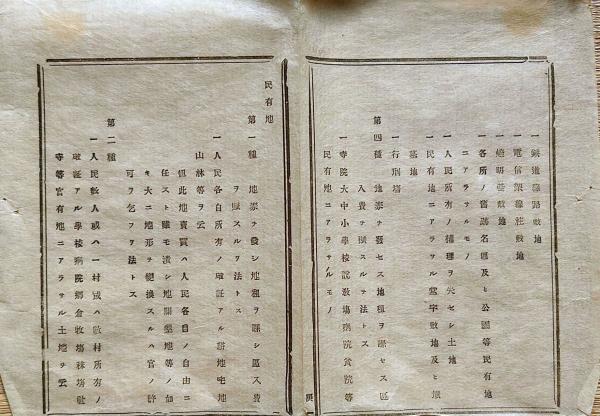 一鉄道線路敷地
一電信架線柱敷地
一燈明台敷地
一各所ノ旧跡名區及ヒ公園等民有地
ニアラサルモノ
一人民所有ノ權理ヲ失セシ土地
一民有地ニアラサル堂宇敷地及ヒ墳
墓地
一行刑場
第四種 地券ヲ發セス地租ヲ課セス區
入費ヲ賦スルヲ法トス
一寺院大中小學校説教場病院貧院等
民有地ニアラサルモノ
民有地
第一種 地券ヲ發シ地租ヲ課シ區入費
ヲ賦スルヲ法トス
一人民各自所有ノ確証アル耕地宅地
山林等ヲ云
但此地賣買ハ人民各自ノ自由ニ
任スト雖モ潰シ地開墾地等ノ如
キ大ニ地形ヲ變換スルハ官ノ許
可ヲ乞フヲ法トス
第二種
一人民數人或ハ一村或ハ數村所有ノ
確証アル學校病院郷倉牧場秣場社
寺等官有地ニアラサル土地ヲ云